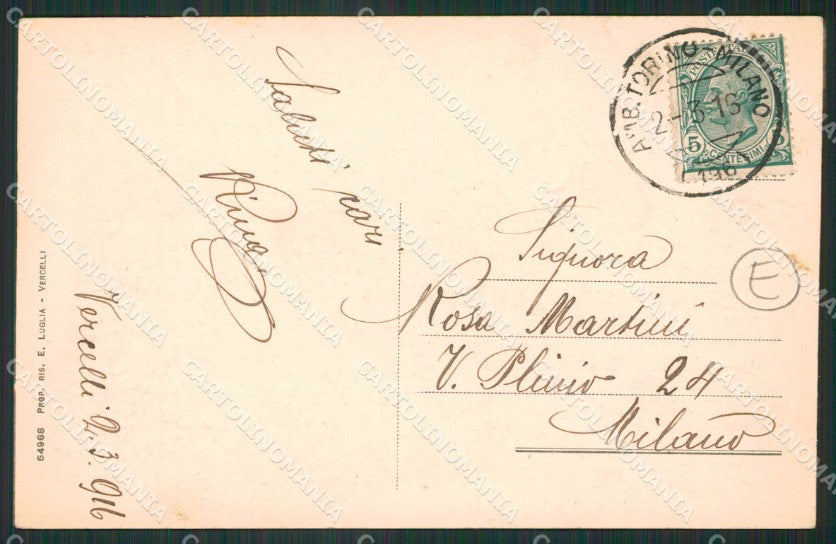 54966 PROP. RIS. E. LUGLIA - VERCELLI
Vercelli 2.3.916
Saluti cari
AMB. TORINO - MILANO
2-3-16
196
5
CENTESIMI
Signora
Rosa Martini
V. Plinio 24
Milano
E
CARTOLINOMANIA